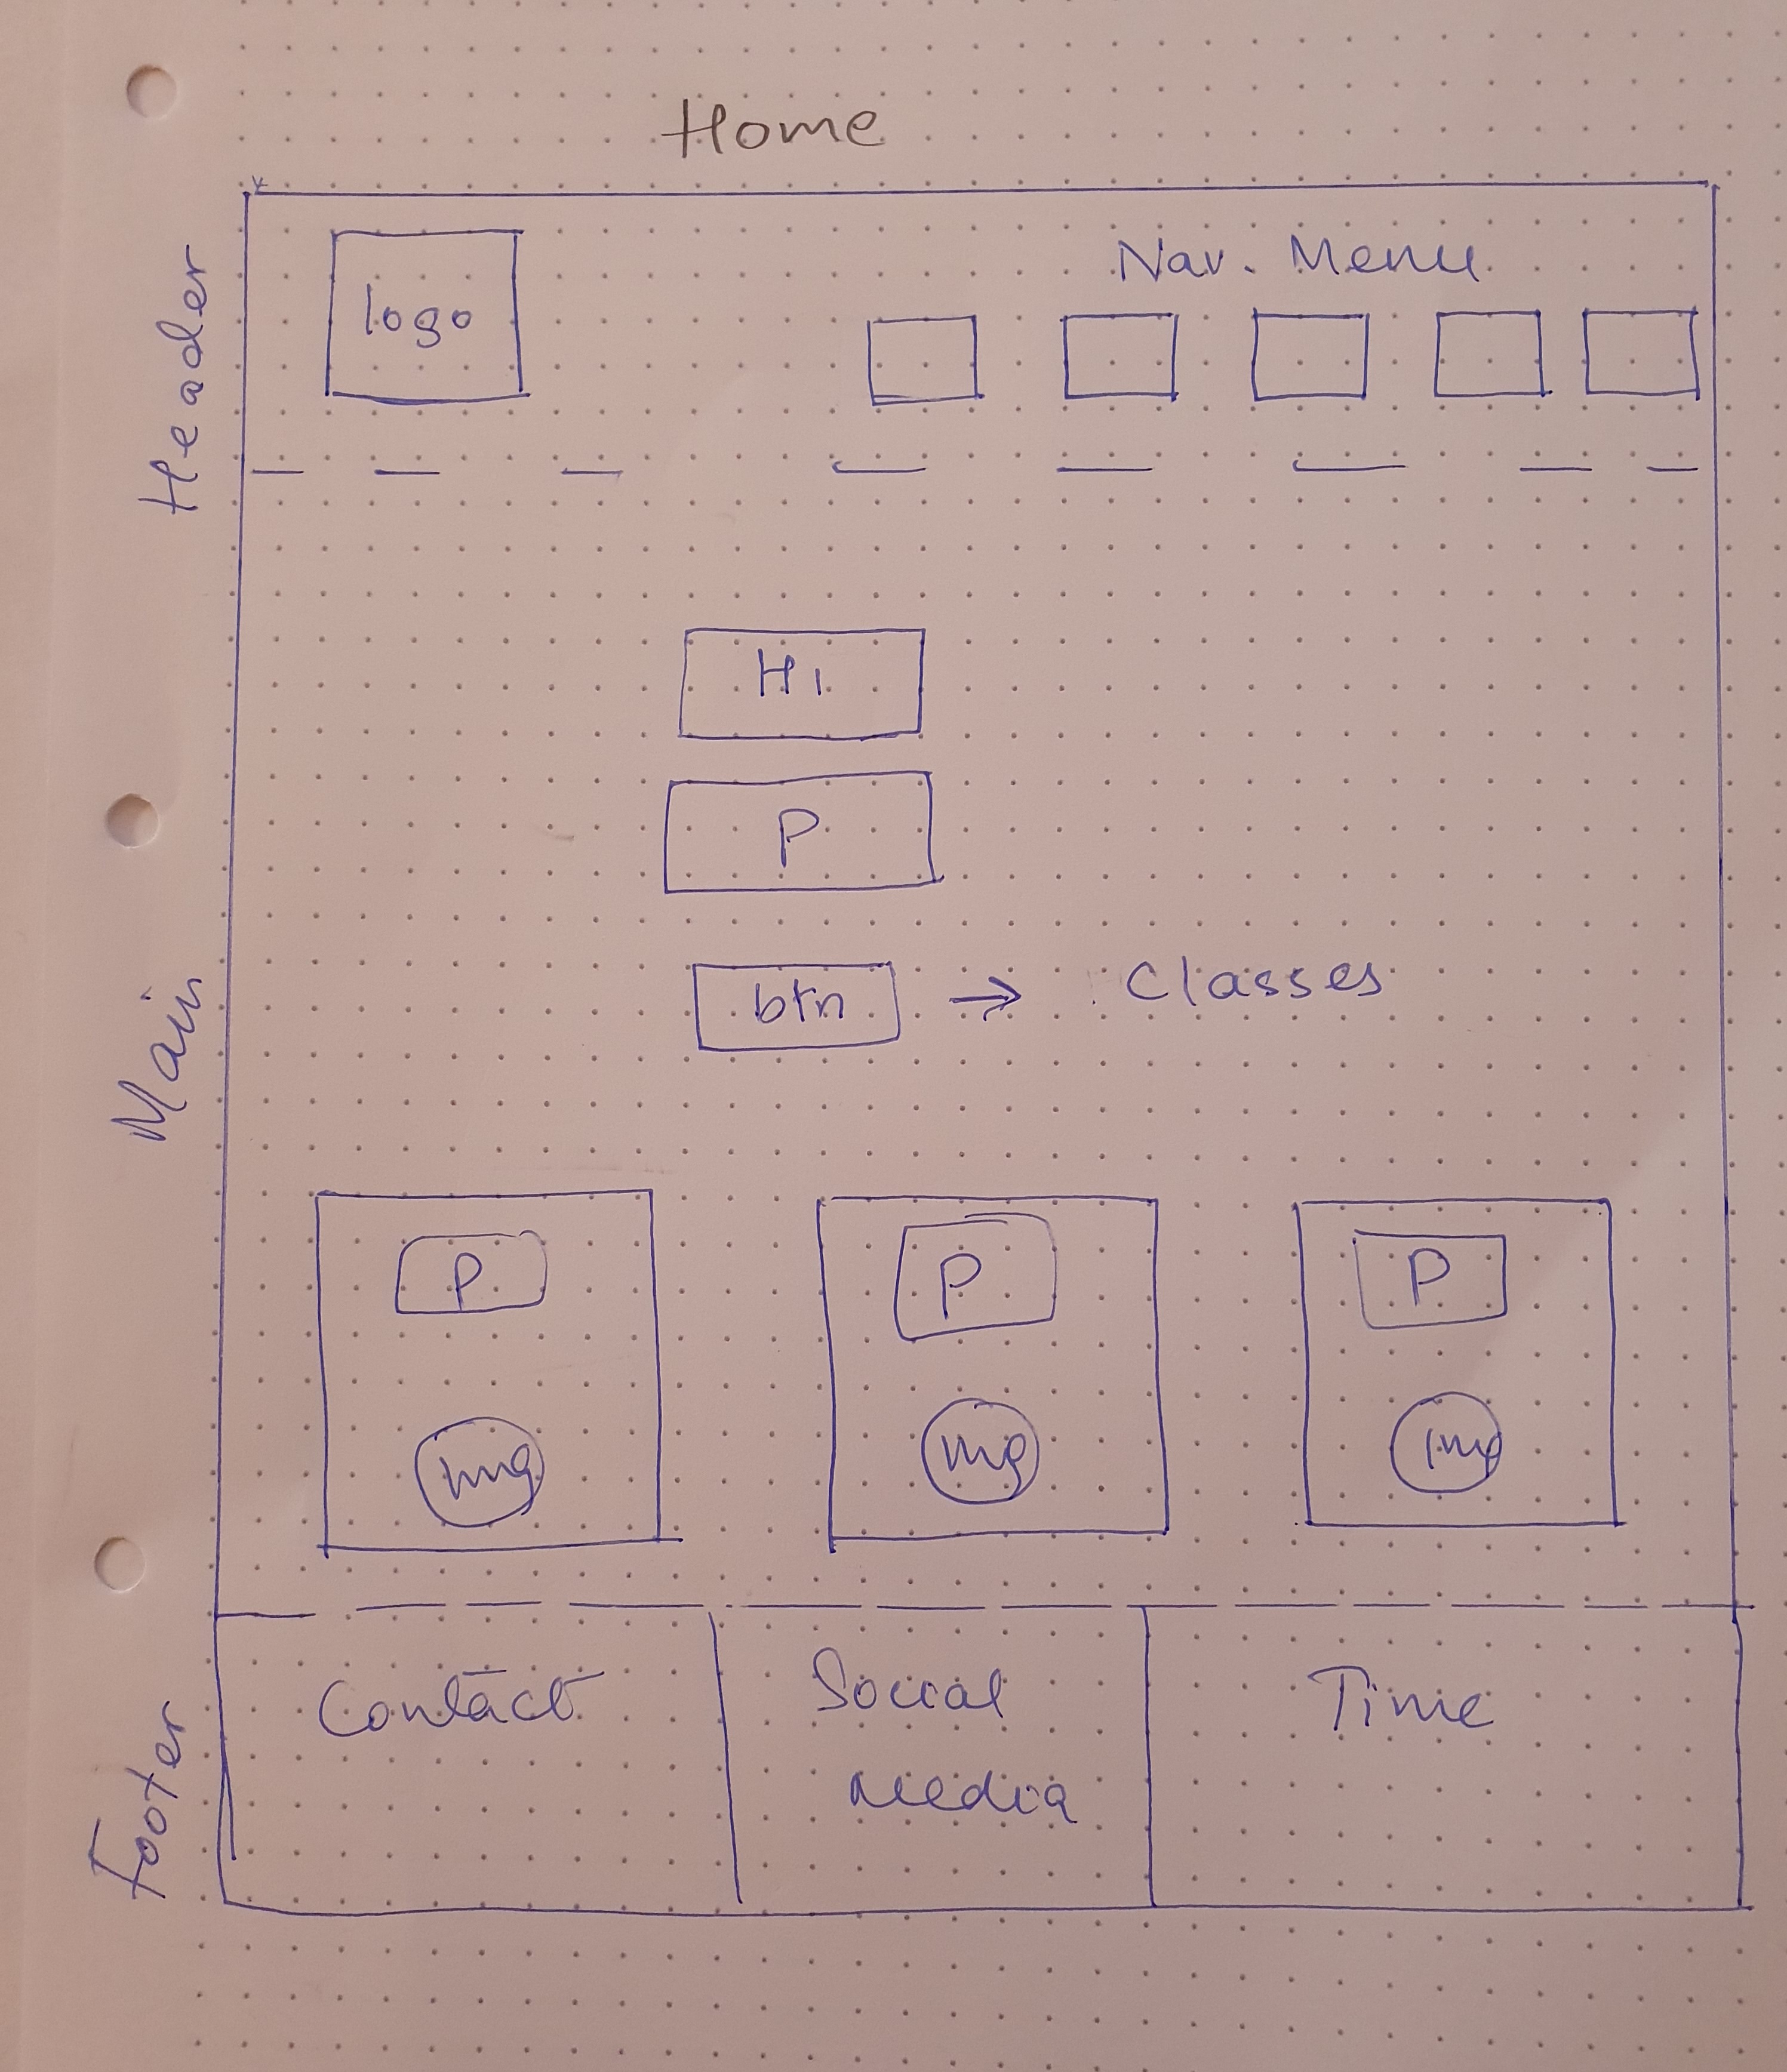 Home
Header
logo
Nav. Menu
Main
H1
P
btn → Classes
P
P
P
img
img
img
Footer
Contact
Social
Media
Time